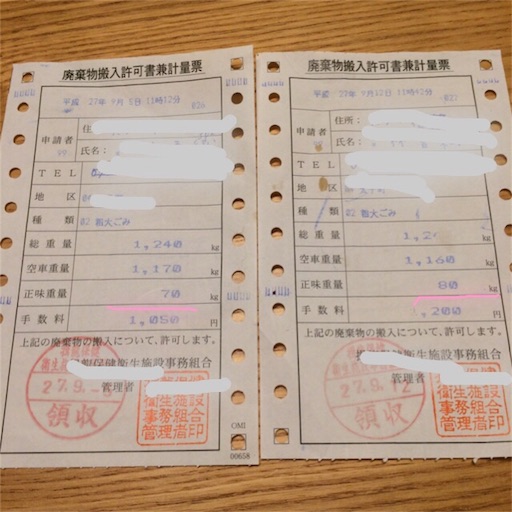 廃棄物搬入許可書兼計量票
平成 27年 9月 8日 11時12分 026
申請者
住
氏名:
TEL
地区
種類 02 粗大ごみ
総重量 1,240 kg
空車重量 1,170 kg
正味重量 70 kg
手数料 1,050 円
上記の廃棄物の搬入について、許可します。
保健衛生施設事務組合
管理者
27.9.
領収
衛生施設
事務組合
管理者印
OMI
00658
廃棄物搬入許可書兼計量票
平成 27年 9月12日 11時42分 022
申請者
住所:
氏名:
TEL
地区
種類 02 粗大ごみ
総重量 1,2 kg
空車重量 1,160 kg
正味重量 80 kg
手数料 1,200 円
上記の廃棄物の搬入について、許可します。
保健衛生施設事務組合
管理者
27.9.12
領収
衛生施設
事務組合
管理者印